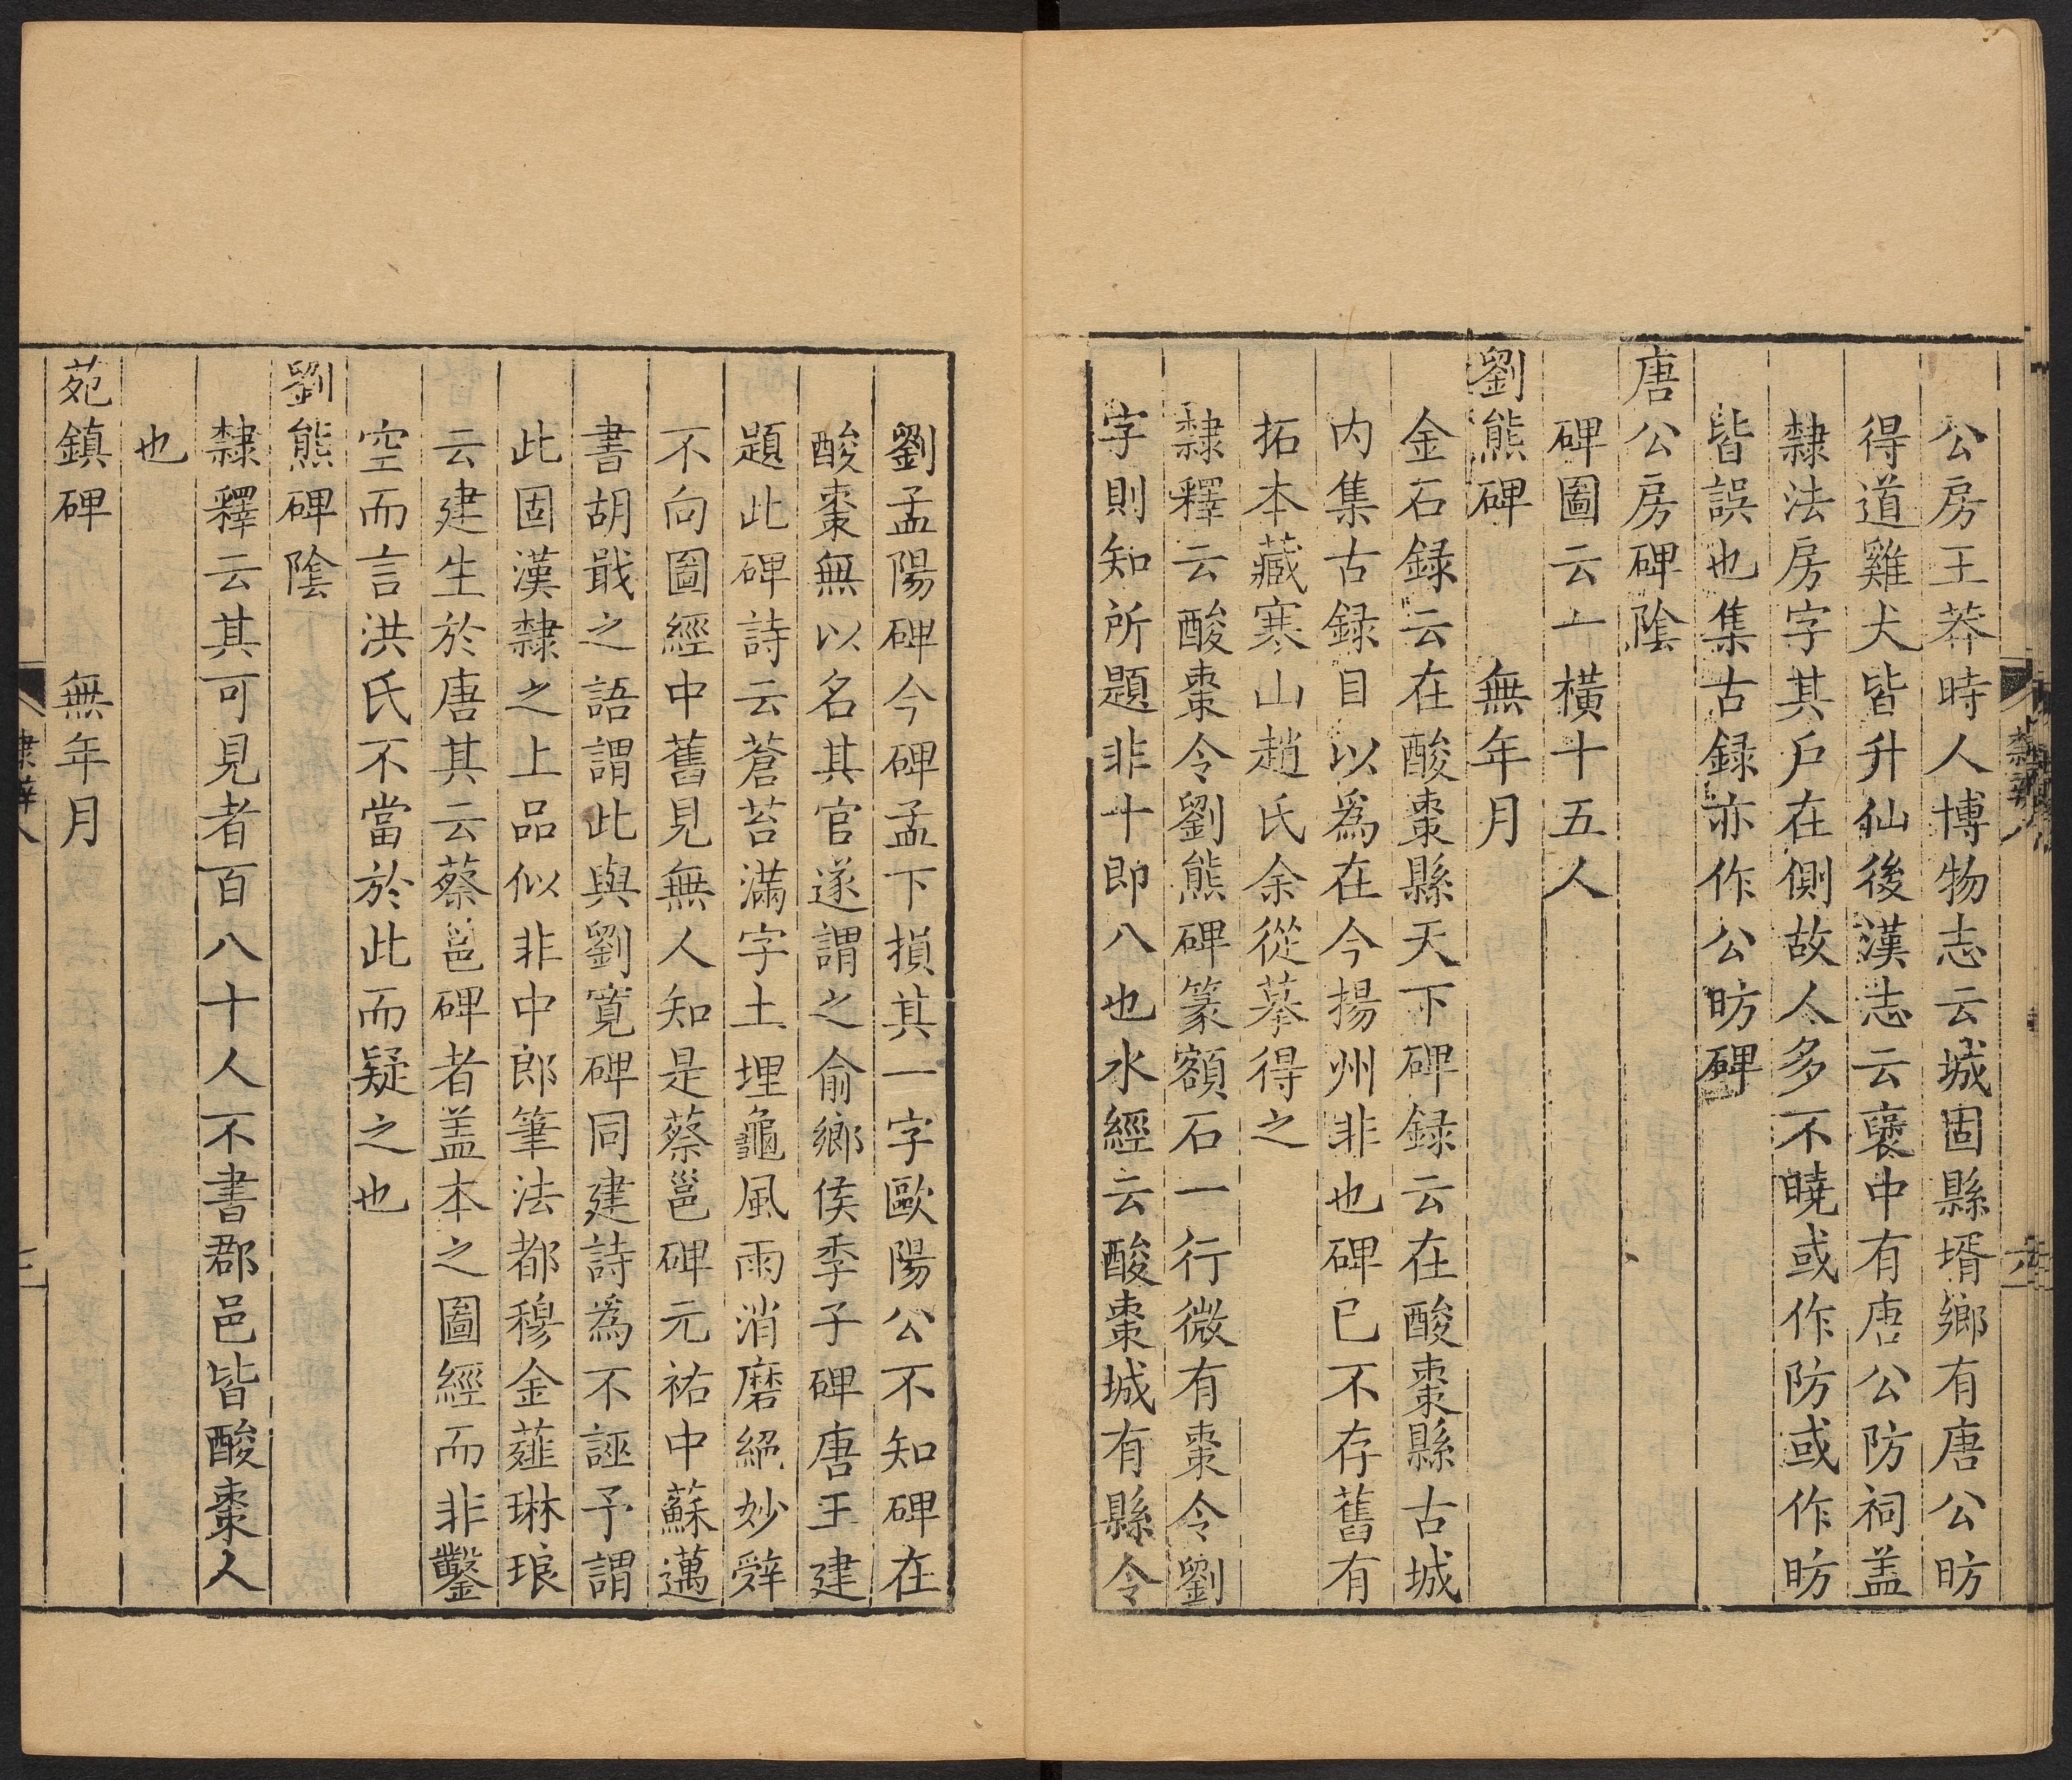 公房王莽時人博物志云城固縣壻鄉有唐公昉
得道雞犬皆升仙後漢志云襃中有唐公防祠盖
隸法房字其戶在側故人多不曉或作防或作昉
皆誤也集古録亦作公昉碑
唐公房碑隂
碑圖云一橫十五人
劉熊碑 無年月
金石録云在酸棗縣天下碑録云在酸棗縣古城
内集古録目以爲在今揚州非也碑已不存舊有
拓本藏寒山趙氏余從摹得之
隸釋云酸棗令劉熊碑篆額石一行微有棗令劉
字則知所題非十即八也水經云酸棗城有縣令
劉孟陽碑今碑孟下損其一字歐陽公不知碑在
酸棗無以名其官遂謂之俞鄉侯季子碑唐王建
題此碑詩云蒼苔滿字土埋龜風雨消磨絕妙辤
不向圖經中舊見無人知是蔡邕碑元祐中蘇邁
書胡戢之語謂此與劉寬碑同建詩爲不誣予謂
此固漢隸之上品似非中郎筆法都穆金薤琳琅
云建生於唐其云蔡邕碑者盖本之圖經而非鑿
空而言洪氏不當於此而疑之也
劉熊碑隂
隸釋云其可見者百八十人不書郡邑皆酸棗人
也
苑鎮碑 無年月